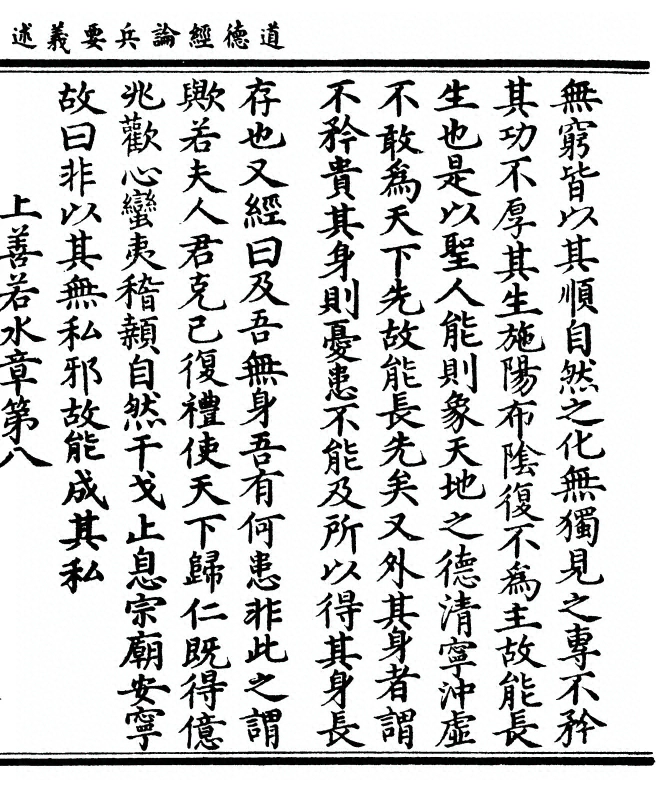 道德經論兵要義述
無窮皆以其順自然之化無獨見之專不矜
其功不厚其生施陽布陰復不為主故能長
生也是以聖人能則象天地之德清寧沖虛
不敢為天下先故能長先矣又外其身者謂
不矜貴其身則憂患不能及所以得其身長
存也又經曰及吾無身吾有何患非此之謂
歟若夫人君克己復禮使天下歸仁既得億
兆歡心蠻夷稽顙自然干戈止息宗廟安寧
故曰非以其無私邪故能成其私
上善若水章第八